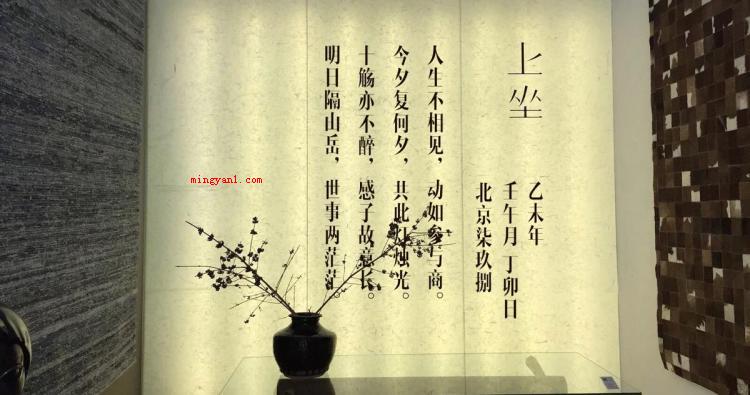 上坐
乙未年
壬午月 丁卯日
北京柒玖捌
人生不相见，动如参与商。
今夕复何夕，共此灯烛光。
十觞亦不醉，感子故意长。
明日隔山岳，世事两茫茫。
mingyan1.com